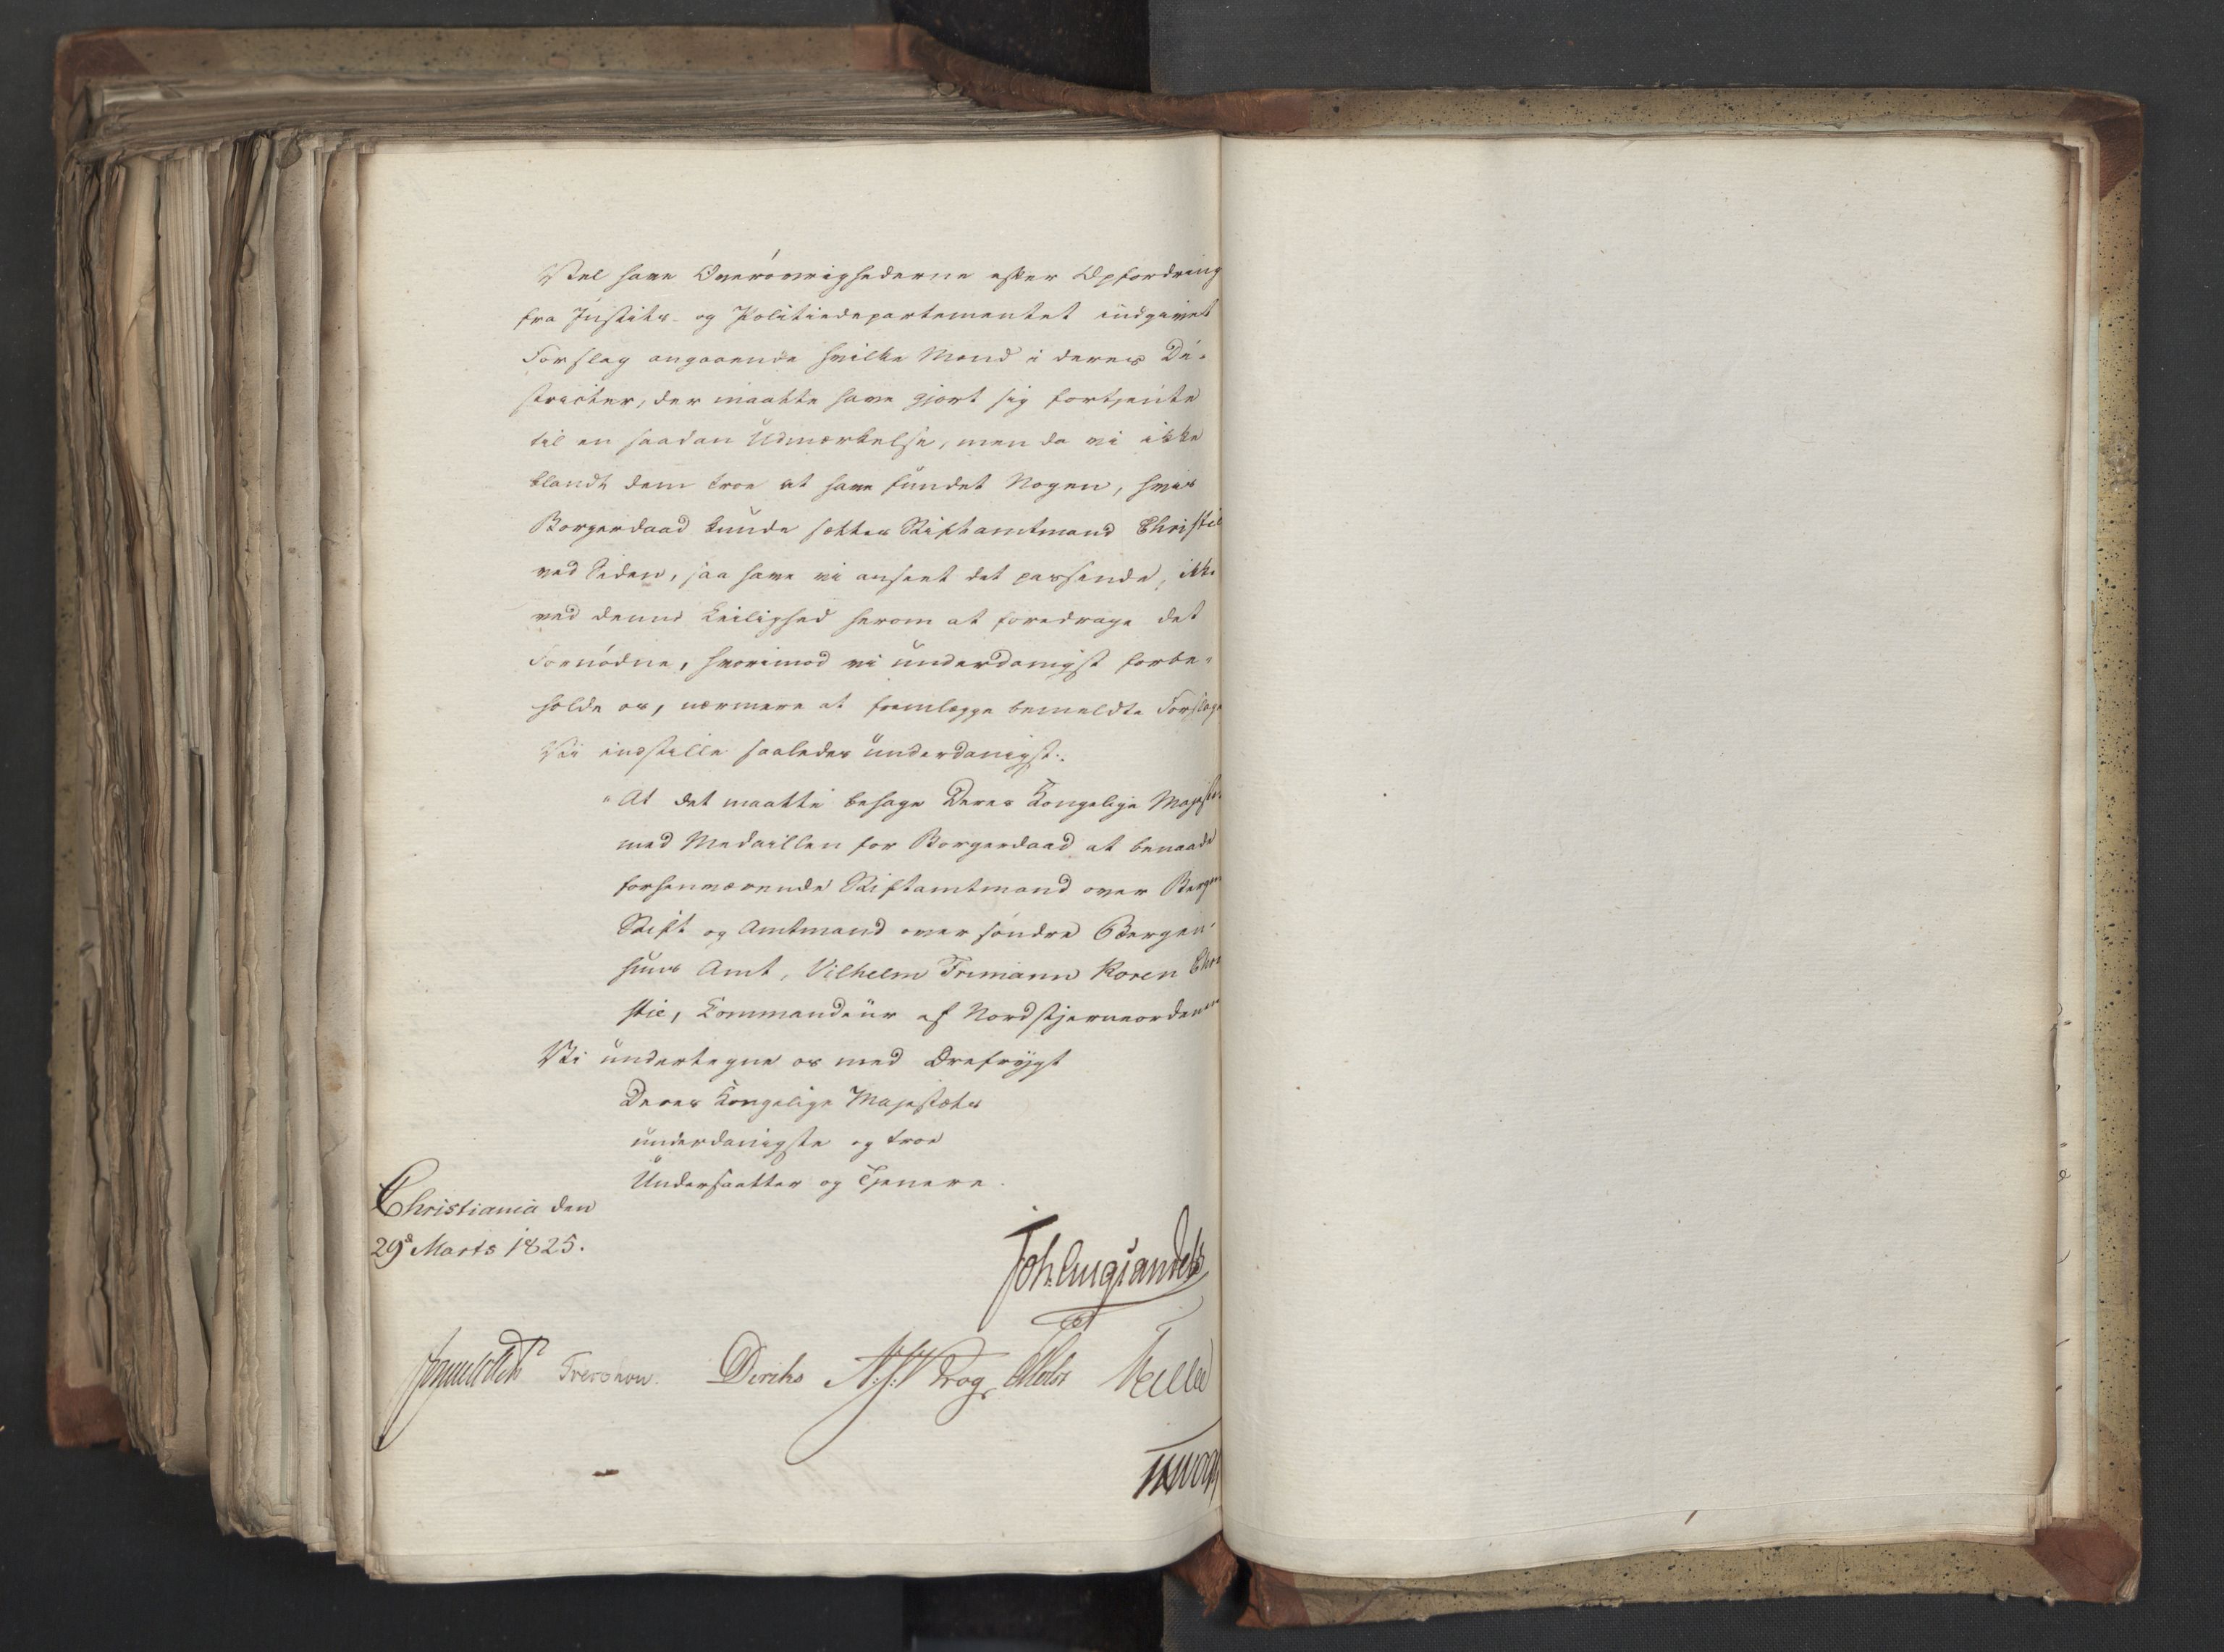 Vel have Overøvrighederne efter Opfordring
fra Justits- og Politiedepartementet indgivet
Forslag angaaende hvilke Mænd i deres Di-
stricter, der maatte have gjort sig fortjente
til en saadan Udmærkelse, men da vi ikke
blandt dem troe at have fundet Nogen, hvis
Borgerdaad kunde sættes Stiftamtmand Christie
ved Siden, saa have vi anseet det passende, ikke
ved denne Leilighed herom at foredrage det
Fornødne, hvorimod vi underdanigst forbe-
holde os, nærmere at fremlægge bemeldte Forslage
Vi indstille saaledes underdanigst:
"At det maatte behage Deres Kongelige Majestæt
med Medaillen for Borgerdaad at benaade
forhenværende Stiftamtmand over Bergens
Stift og Amtmand over søndre Bergen-
huus Amt, Vilhelm Frimann Koren Chri
stie, Kommandeur af Nordstjerneordenen
Vi undertegne os med Ærefrygt
Deres Kongelige Majestæts
underdanigste og troe
Undersaatter og Tjenere.
Christiania den
29d Marts 1825.
Joh. Aug. Sandels
Treschow. Diriks Holst